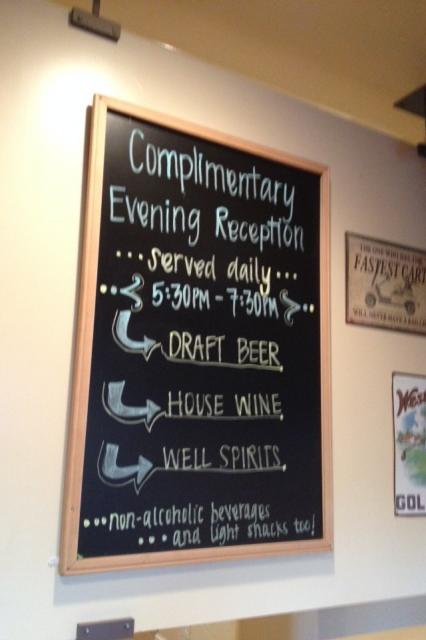 Complimentary
Evening Reception
...served daily...
5:30PM - 7:30PM
DRAFT BEER
HOUSE WINE
WELL SPIRITS
...non-alcoholic beverages
...and light snacks too!
THE ONE WHO HAS THE
FASTEST CART
WILL NEVER HAVE A BAD LIE
GOL